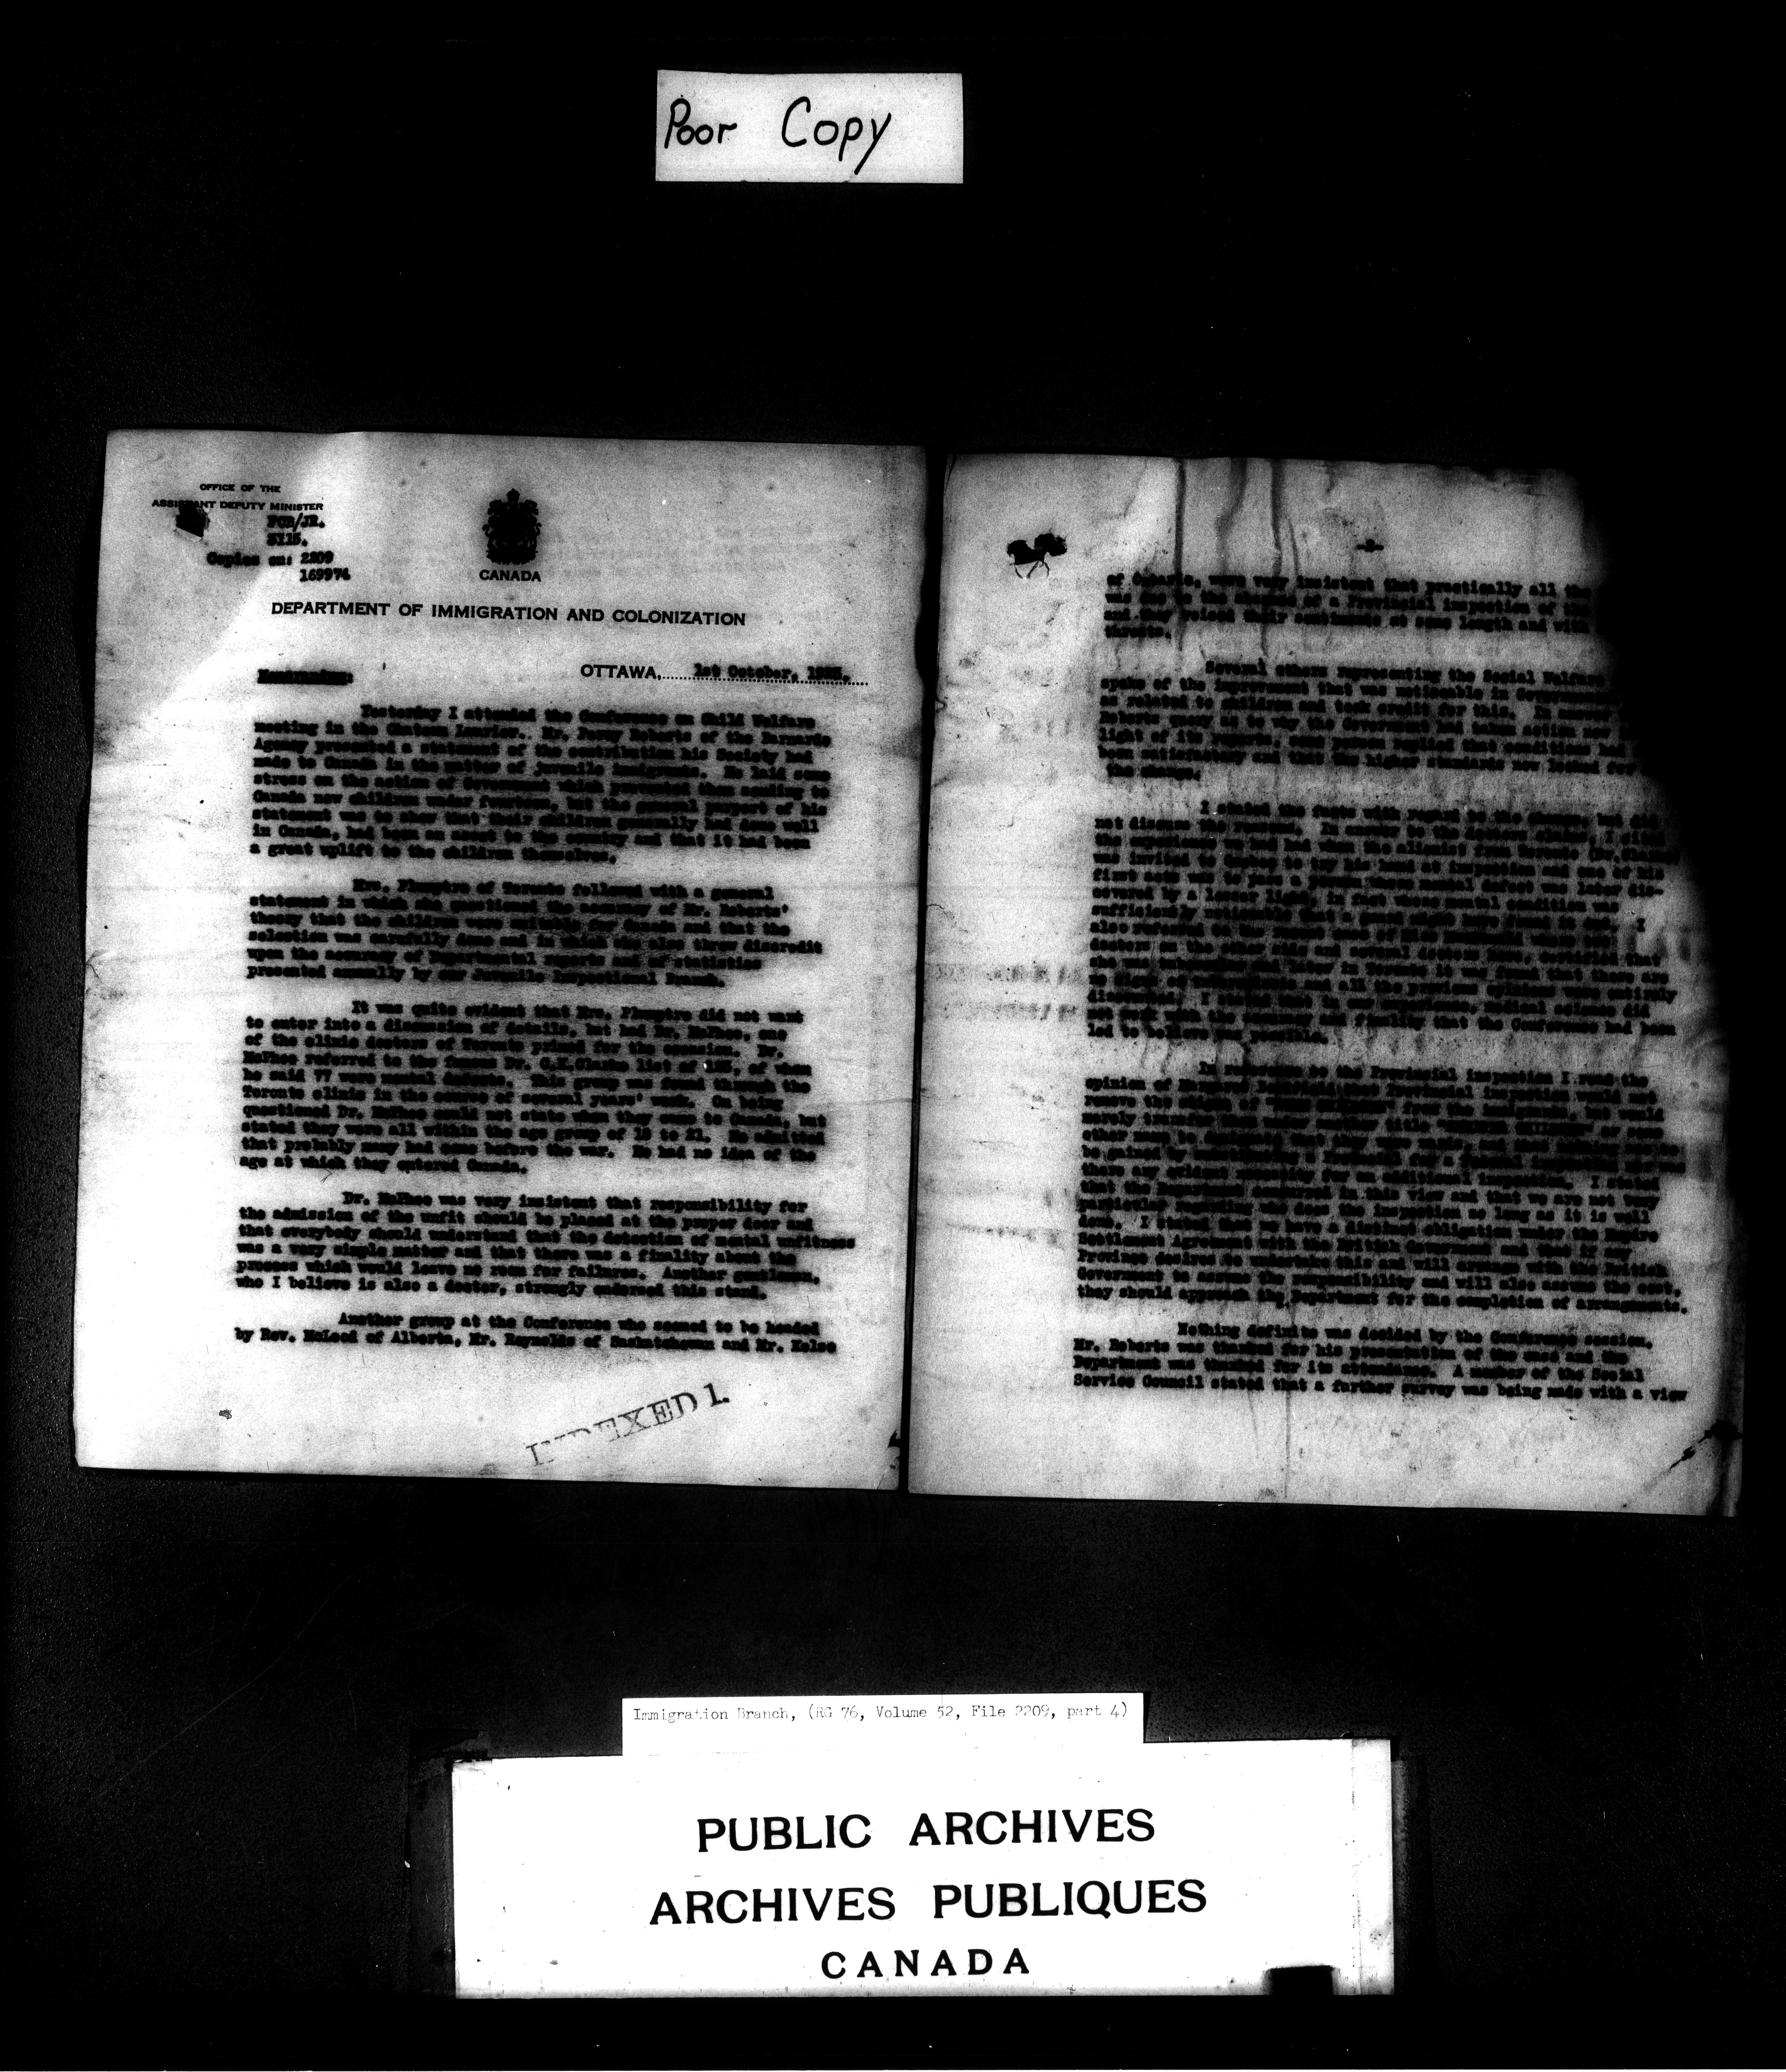 Poor Copy
OFFICE OF THE
ASSISTANT DEPUTY MINISTER
FCB/JR.
Copies on: 2209
169974
CANADA
DEPARTMENT OF IMMIGRATION AND COLONIZATION
OTTAWA, 1st October,
Memorandum:
Yesterday I attended the Conference on Child Welfare
meeting in the Chateau Laurier. Mr. Percy Roberts of the Barnardo
Agency presented a statement of the contribution his Society had
made to Canada in the matter of juvenile immigrants. He laid some
stress on the action of Government which prevented them sending to
Canada new children under fourteen, but the general purport of his
statement was to show that their children generally had done well
in Canada, had been an asset to the country and that it had been
a great uplift to the children themselves.
Mrs. Plumptre of Toronto followed with a general
statement in which she questioned the accuracy of Mr. Roberts'
theory that the children were suitable for Canada and that the
selection was carefully done and in which she also threw discredit
upon the accuracy of Departmental reports and of statistics
presented annually by our Juvenile Inspectional Branch.
It was quite evident that Mrs. Plumptre did not want
to enter into a discussion of details, but had Dr. McPhee, one
of the clinic doctors of Toronto primed for the occasion. Dr.
McPhee referred to the famous Dr. C.K.Clarke list of 125, of whom
he said 77 were mental defects. This group was found through the
Toronto clinic in the course of several years' work. On being
questioned Dr. McPhee could not state when they came to Canada, but
stated they were all within the age group of 15 to 21. He admitted
that probably many had come before the war. He had no idea of the
age at which they entered Canada.
Dr. McPhee was very insistent that responsibility for
the admission of the unfit should be placed at the proper door and
that everybody should understand that the detection of mental unfitness
was a very simple matter and that there was a finality about the
process which would leave no room for failures. Another gentleman,
who I believe is also a doctor, strongly endorsed this stand.
Another group at the Conference who seemed to be headed
by Rev. McLeod of Alberta, Mr. Reynolds of Saskatchewan and Mr. Kelso
INDEXED 1.
-2-
of Ontario, were very insistent that practically all the
was due to the absence of a Provincial inspection of the
and they voiced their sentiments at some length and with
threats.
Several others representing the Social Welfare
spoke of the improvement that was noticeable in
as related to children and took credit for this. In answer
Roberts query as to why the Government had taken action now
light of its reports, some person replied that conditions had
been satisfactory and that the higher standards now looked for
the change.
I stated the facts with regard to the change, but did
not discuss the reasons. In answer to the doctors
the experience we had had when the alienist from Toronto (Dr. Clarke)
was invited to Quebec to try his hand at inspection and one of his
first acts was to pass a person whose mental defect was later dis-
covered by a lesser light, in fact whose mental condition was
sufficiently noticeable that I
also referred to the
doctors on the other side and several doctors here, certified that
she was and later in Toronto it was found that there are
and all the previous opinions were entirely
I stated that in our experience, medical science did
not work with the accuracy and finality that the Conference had been
led to believe was possible.
In reference to the Provincial inspection I read the
opinion of Margaret Bondfield that Provincial inspection would not
remove the stigma of from the immigrants, but would
merely transfer them under another title or some
other name to designate what they were
be gained by
there any evident necessity for an additional inspection. I stated
that the Department concurred in this view and that we are not very
particular regarding who does the inspection so long as it is well
done. I stated that we have a distinct obligation under the Empire
Settlement Agreement with the British Government and that if any
Province desires to undertake this and will arrange with the British
Government to assume the responsibility and will also assume the cost,
they should approach the Department for the completion of arrangements.
Nothing definite was decided by the Conference session.
Mr. Roberts was thanked for his presentation of the case and the
Department was thanked for its attendance. A member of the Social
Service Council stated that a further survey was being made with a view
Immigration Branch, (RG 76, Volume 52, File 2209, part 4)
PUBLIC ARCHIVES
ARCHIVES PUBLIQUES
CANADA